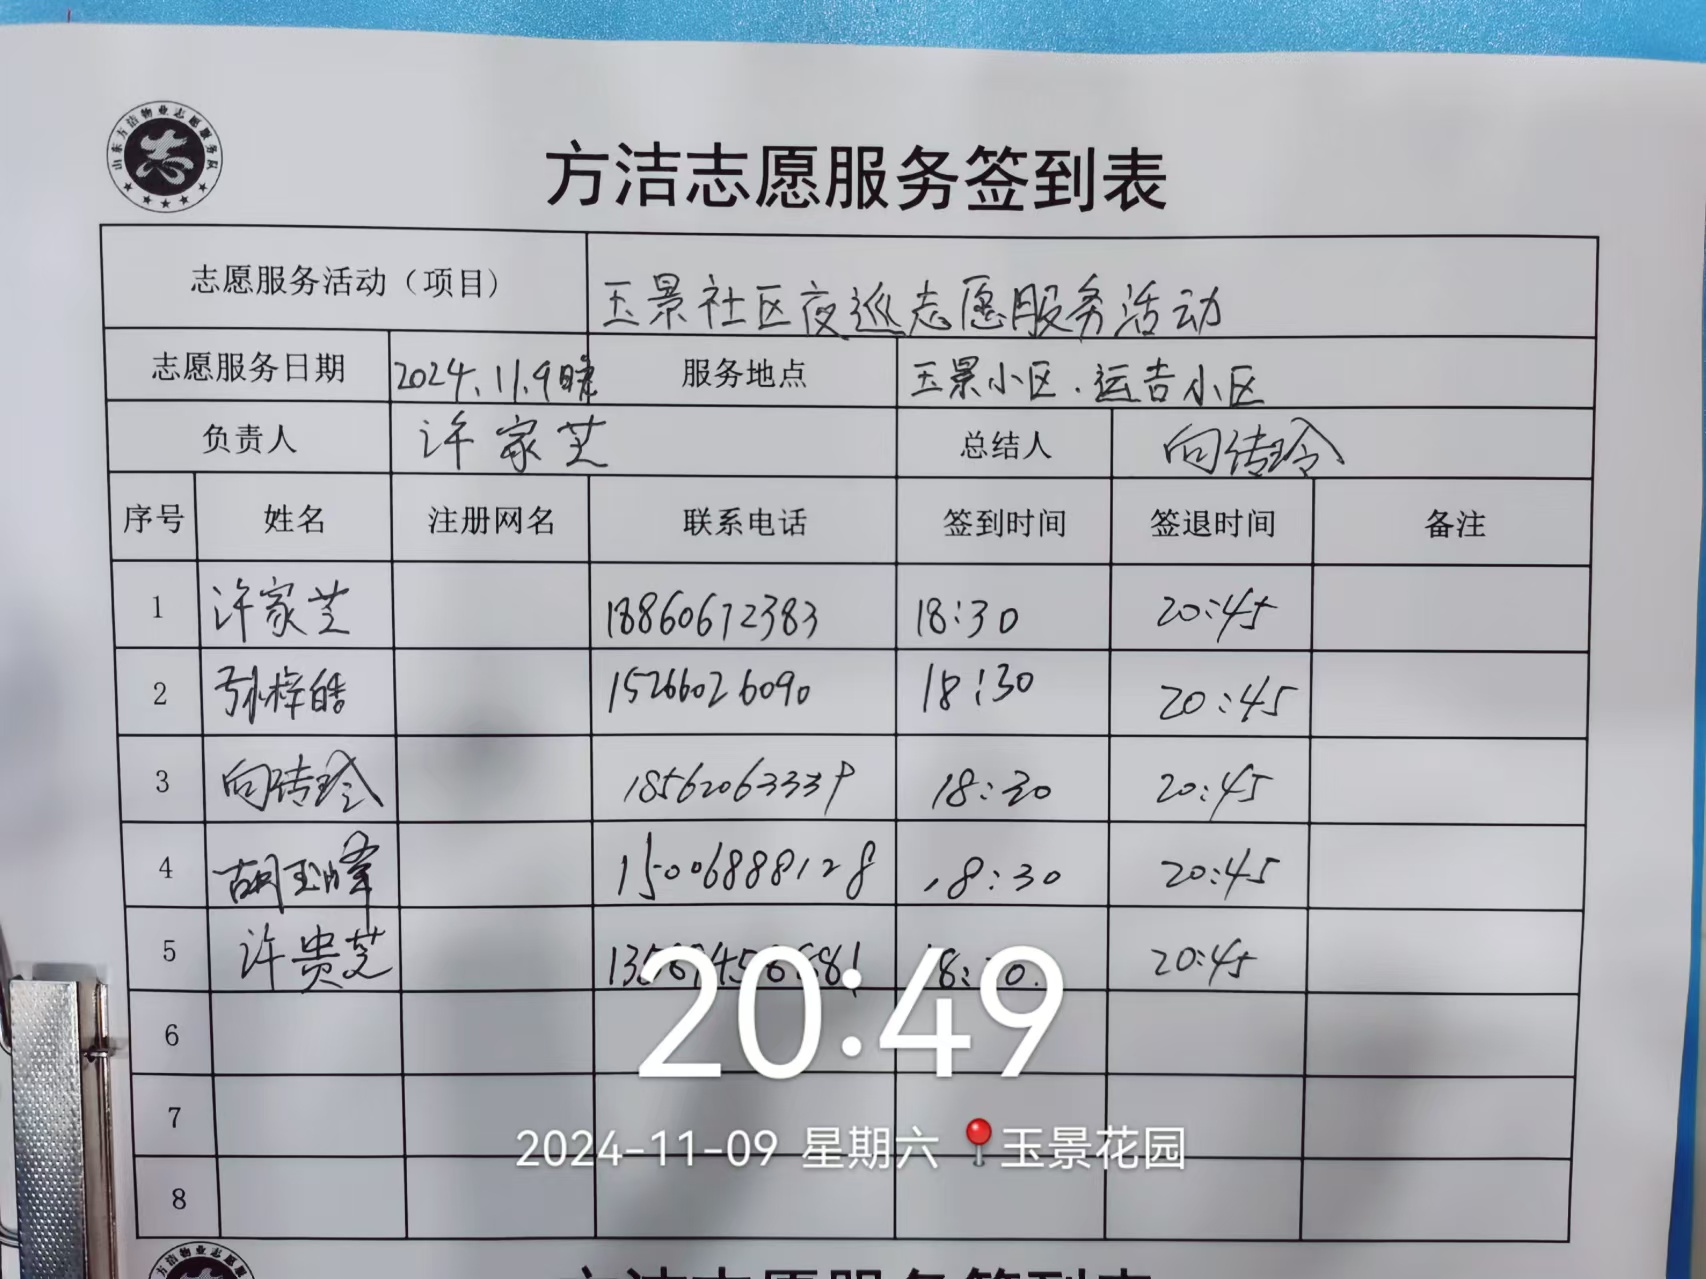 山东方洁物业志愿服务队
志
方洁志愿服务签到表
志愿服务活动（项目） 玉景社区夜巡志愿服务活动
志愿服务日期 2024.11.9晚 服务地点 玉景小区.运吉小区
负责人 许家芝 总结人 向传玲
序号 姓名 注册网名 联系电话 签到时间 签退时间 备注
1 许家芝 18860672383 18:30 20:45
2 孙梓皓 15266026090 18:30 20:45
3 向传玲 18:30 20:45
4 胡玉峰 15006888128 18:30 20:45
5 许贵芝 20:45
6
7
8
20:49
2024-11-09 星期六 玉景花园
方洁志愿服务签到表